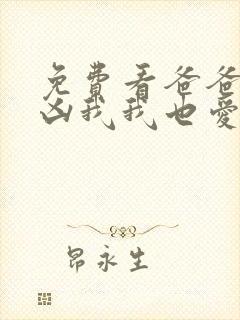 免费看爸爸
凶我我也爱
昂永生